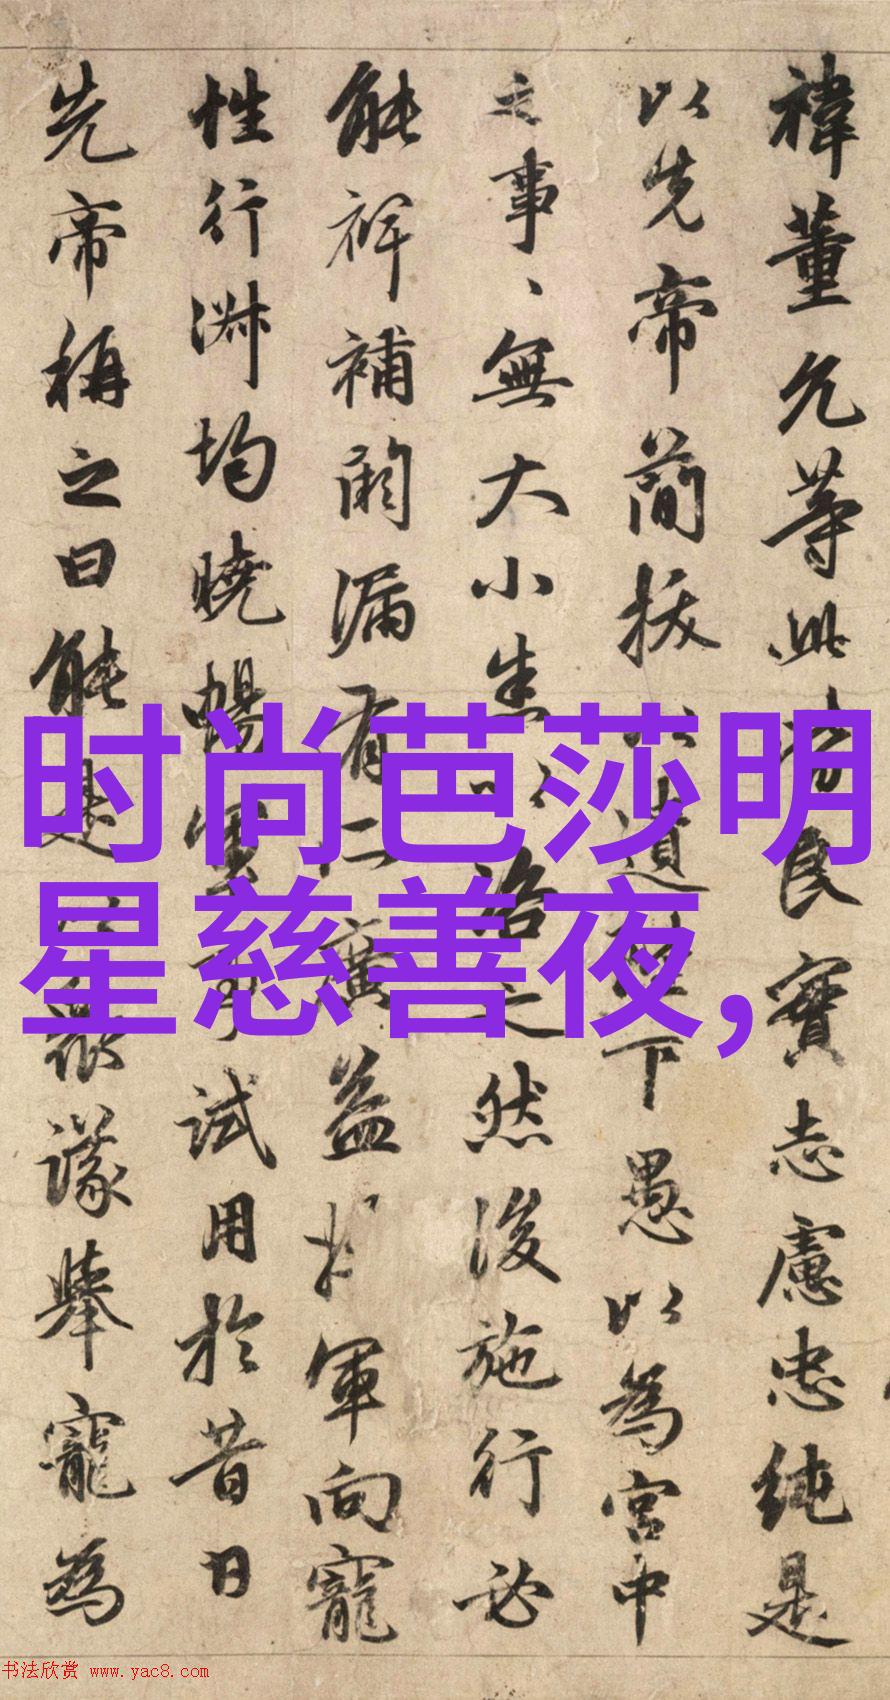 禕董允等此皆良實志慮忠純是
以先帝簡拔以遺陛下愚以為宮中
之事、無大小悉以諮之然後施行必
能裨補闕漏有所廣益將軍向寵
性行淑均曉暢軍事試用於昔日
先帝稱之曰能是以眾議舉寵為
时尚芭莎明
星慈善夜,
书法欣赏 www.yac8.com